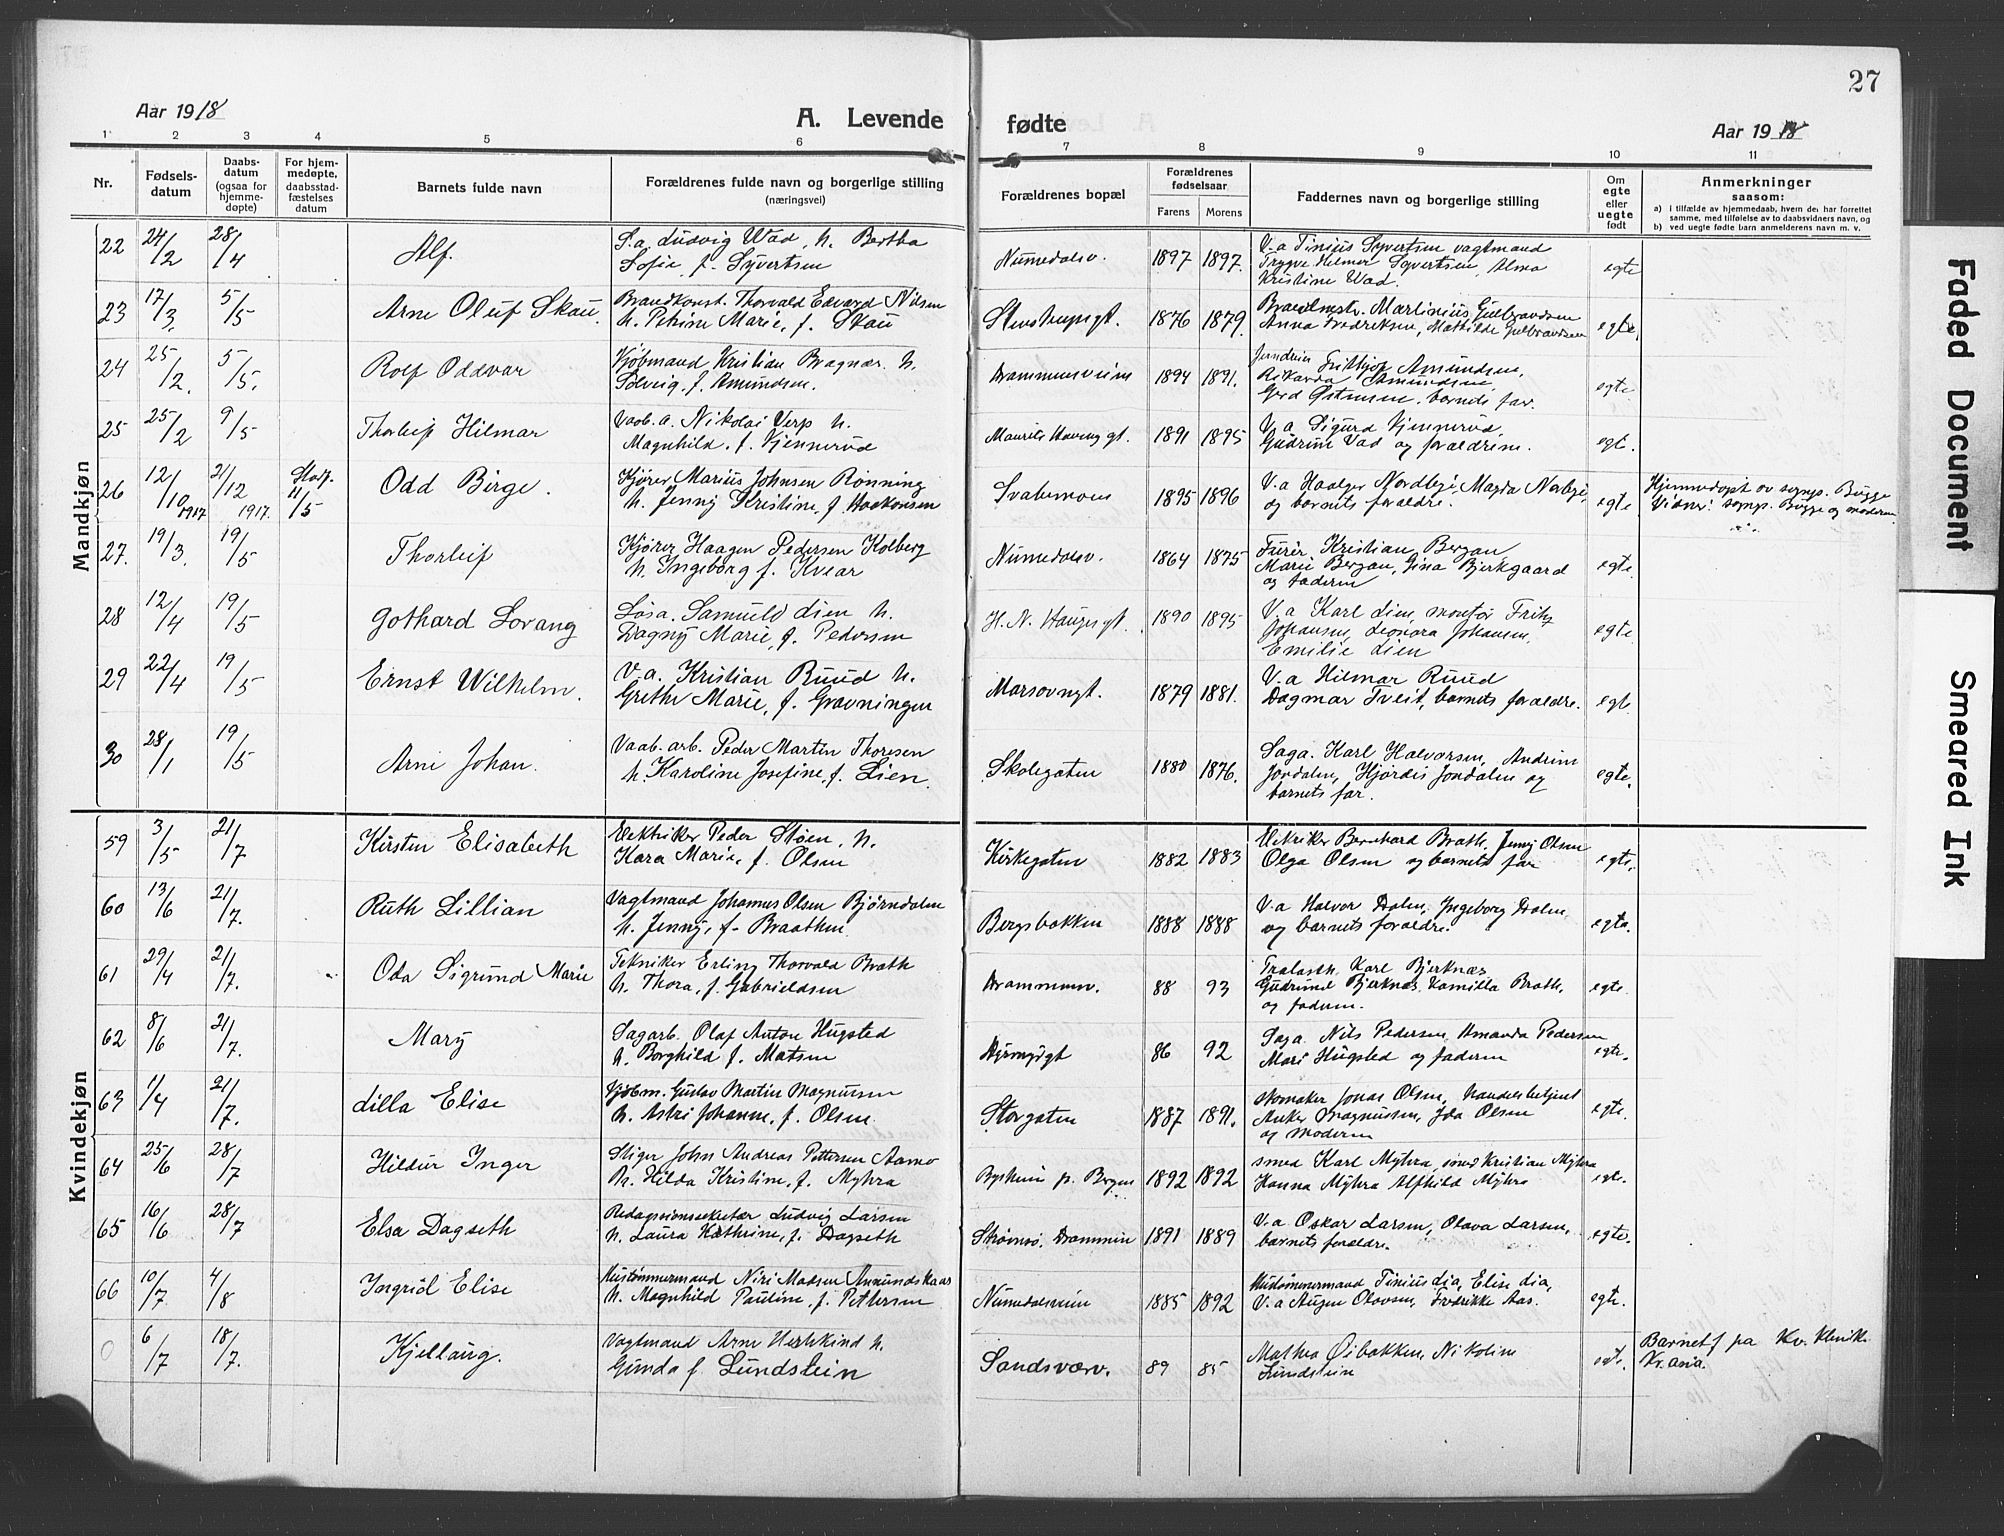 27
Aar 1918
A. Levende
fødte
Aar 1918
1 2 3 4 5 6 7 8 9 10 11
Nr.
Fødsels-
datum
Daabs-
datum
(ogsaa for
hjemme-
døpte)
For hjem-
medøpte,
daabsstad-
fæstelses
datum
Barnets fulde navn
Forældrenes fulde navn og borgerlige stilling
(næringsvei)
Forældrenes bopæl
Forældrenes
fødselsaar
Farens Morens
Faddernes navn og borgerlige stilling
Om
egte
eller
uegte
født
Anmerkninger
saasom:
a) i tilfælde av hjemmedaab, hvem der har forrettet
samme, med tilføielse av to daabsvidners navn, og
b) ved uegte fødte barn anmelderens navn m. v.
Mandkjøn
22 24/2 28/4 Alf. S.a. Ludvig Wad, h. Bertha
Sofie f. Syvertsen
Numedalsv. 1897 1897. V.a Tinius Syvertsen vagtmand
Trygve Hilmer Syvertsen, Alma
Kristine Wad. egte
23 17/3. 5/5 Arne Oluf Skau. Brandkonst. Thorvald Edvard Nilsen
h. Petrine Marie, f. Skau
Stenstrupsgt. 1876 1879. Brandmestr. Martinius Gulbrandsen
Anna Fredriksen, Mathilde Gulbrandsen egte.
24 25/2. 5/5. Rolf Oddvar Kjøbmand Kristian Bragnæs. h.
Solveig, f. Amundsen.
Drammensveien 1894 1891. Frithjof Amundsen,
Rikarda Amundsen,
Gerd Østensen, barnets far. egte
25 25/2 9/5 Thorleif Hilmar Vaab. a. Nikolai Verp h.
Magnhild, f. Kjennerud
Maurits Hansens gt. 1891 1895 V.a Sigurd Kjennerud,
Gudrun Vad og forældrene. egt.
26 12/10 1917 21/12 1917. Stadf. 11/5 Odd Birge. Kjører Marius Johnsen Rønning
h. Jenny Kristine, f. Haakonsen
Svabemoen 1895 1896 V.a Haalger Nordbye, Magda Norbye,
og barnets forældre. egte Hjemmedøpt av sognp. Bugge
Vidner: sognp. Bugge og moderen.
27. 19/3. 19/5 Thorleif Kjører Haagen Pedersen Kolberg
h. Ingeborg f. Kvear
Numedalsv. 1864 1875 Furér Kristian Bergan
Marie Bergan, Gina Bjerkgaard
og faderen egte.
28 12/4 19/5 Gothard Lovang Løsa. Samuel Lien h.
Dagny Marie, f. Pedersen
H. N. Haugesgt. 1890 1895 V.a Karl Lien, montør Fritz
Johansen, Leonora Johansen,
Emilie Lien egte
29 22/4 19/5 Ernst Wilhelm. V.a. Kristian Ruud h.
Grethe Marie, f. Gravningen
Morsovngt. 1879 1881. V.a Hilmar Ruud
Dagmar Tveit, barnets forældre. egt.
30 28/1 19/5 Arne Johan. Vaab. arb. Peder Martin Thoresen
h. Karoline Josefine, f. Lien.
Skolegaten 1880 1876. Saga. Karl Halvorsen, Andrine
Jordalen, Hjørdis Jondalen og
barnets far. egte.
Kvindekjøn
59 3/5 21/7 Kirsten Elisabeth Elektriker Peder Støen, h.
Kara Marie, f. Olsen
Kirkegaten 1882 1883 Elektriker Bernhard Brath, Jenny Olsen
Olga Olsen og barnets far egte.
60 13/6 21/7. Ruth Lillian Vagtmand Johannes Olsen Bjørndalen
h. Jenny, f. Braathen
Bergsbakken 1888 1888 V.a Halvor Dalen, Ingeborg Dalen,
og barnets forældre. egte.
61 29/4 21/7. Oda Sigrund Marie Tekniker Erling Thorvald Brath
h. Thora, f. Gabrielsen
Drammensv. 88 93 Karl Bjerknæs
Gudrund Bjerknæs, Kamilla Brath,
og faderen. egte.
62 8/6 21/7. Mary Sagarb. Olaf Anton Hugsted
h. Borghild f. Matsen
Dyrmyrgt 86 92 Saga. Nils Pedersen, Amanda Pedersen
Mari Hugsted og faderen egte.
63 1/4 21/7. Lilla Elise Kjøbm. Gustav Martin Magnussen
h. Astri Johanne, f. Olsen
Storgaten 1887 1891. skomaker Jonas Olsen, Handelsbetjent
Anker Magnussen, Ida Olsen
og moderen egte.
64 25/6 28/7 Hildur Inger Stiger John Andreas Pettersen Aamo
h. Hilda Kristine, f. Myhra
1892 1892 smed Karl Myhra, smed Kristian Myhra
Hanna Myhra Alfhild Myhra egte.
65 16/6 28/7 Elsa Dagseth Redaksjonssekretær Ludvig Larsen
h. Laura Kathrine, f. Dagseth
Strømsø, Drammen 1891 1889 V.a Oskar Larsen, Olava Larsen,
barnets forældre. egte.
66 10/7 4/8 Ingrid Elise Hustømmermand Niri Madsen Amundskaas
h. Magnhild Pauline, f. Pettersen
Numedalsveien 1885 1892 Hustømmermand Tinius Lia, Elise Lia,
V.a Augen Olavsen, Fredrikke Aas. egte.
0 6/7 18/7. Kjellaug. Vagtmand Arne Herlekind h.
Gunda f. Lundstein
Sandsværv. 89 85 Mathea Øibakken, Nikoline
Lundstein egte. Barnet f paa Kv. klinikk
Kr.ania.
Faded Document
Smeared Ink